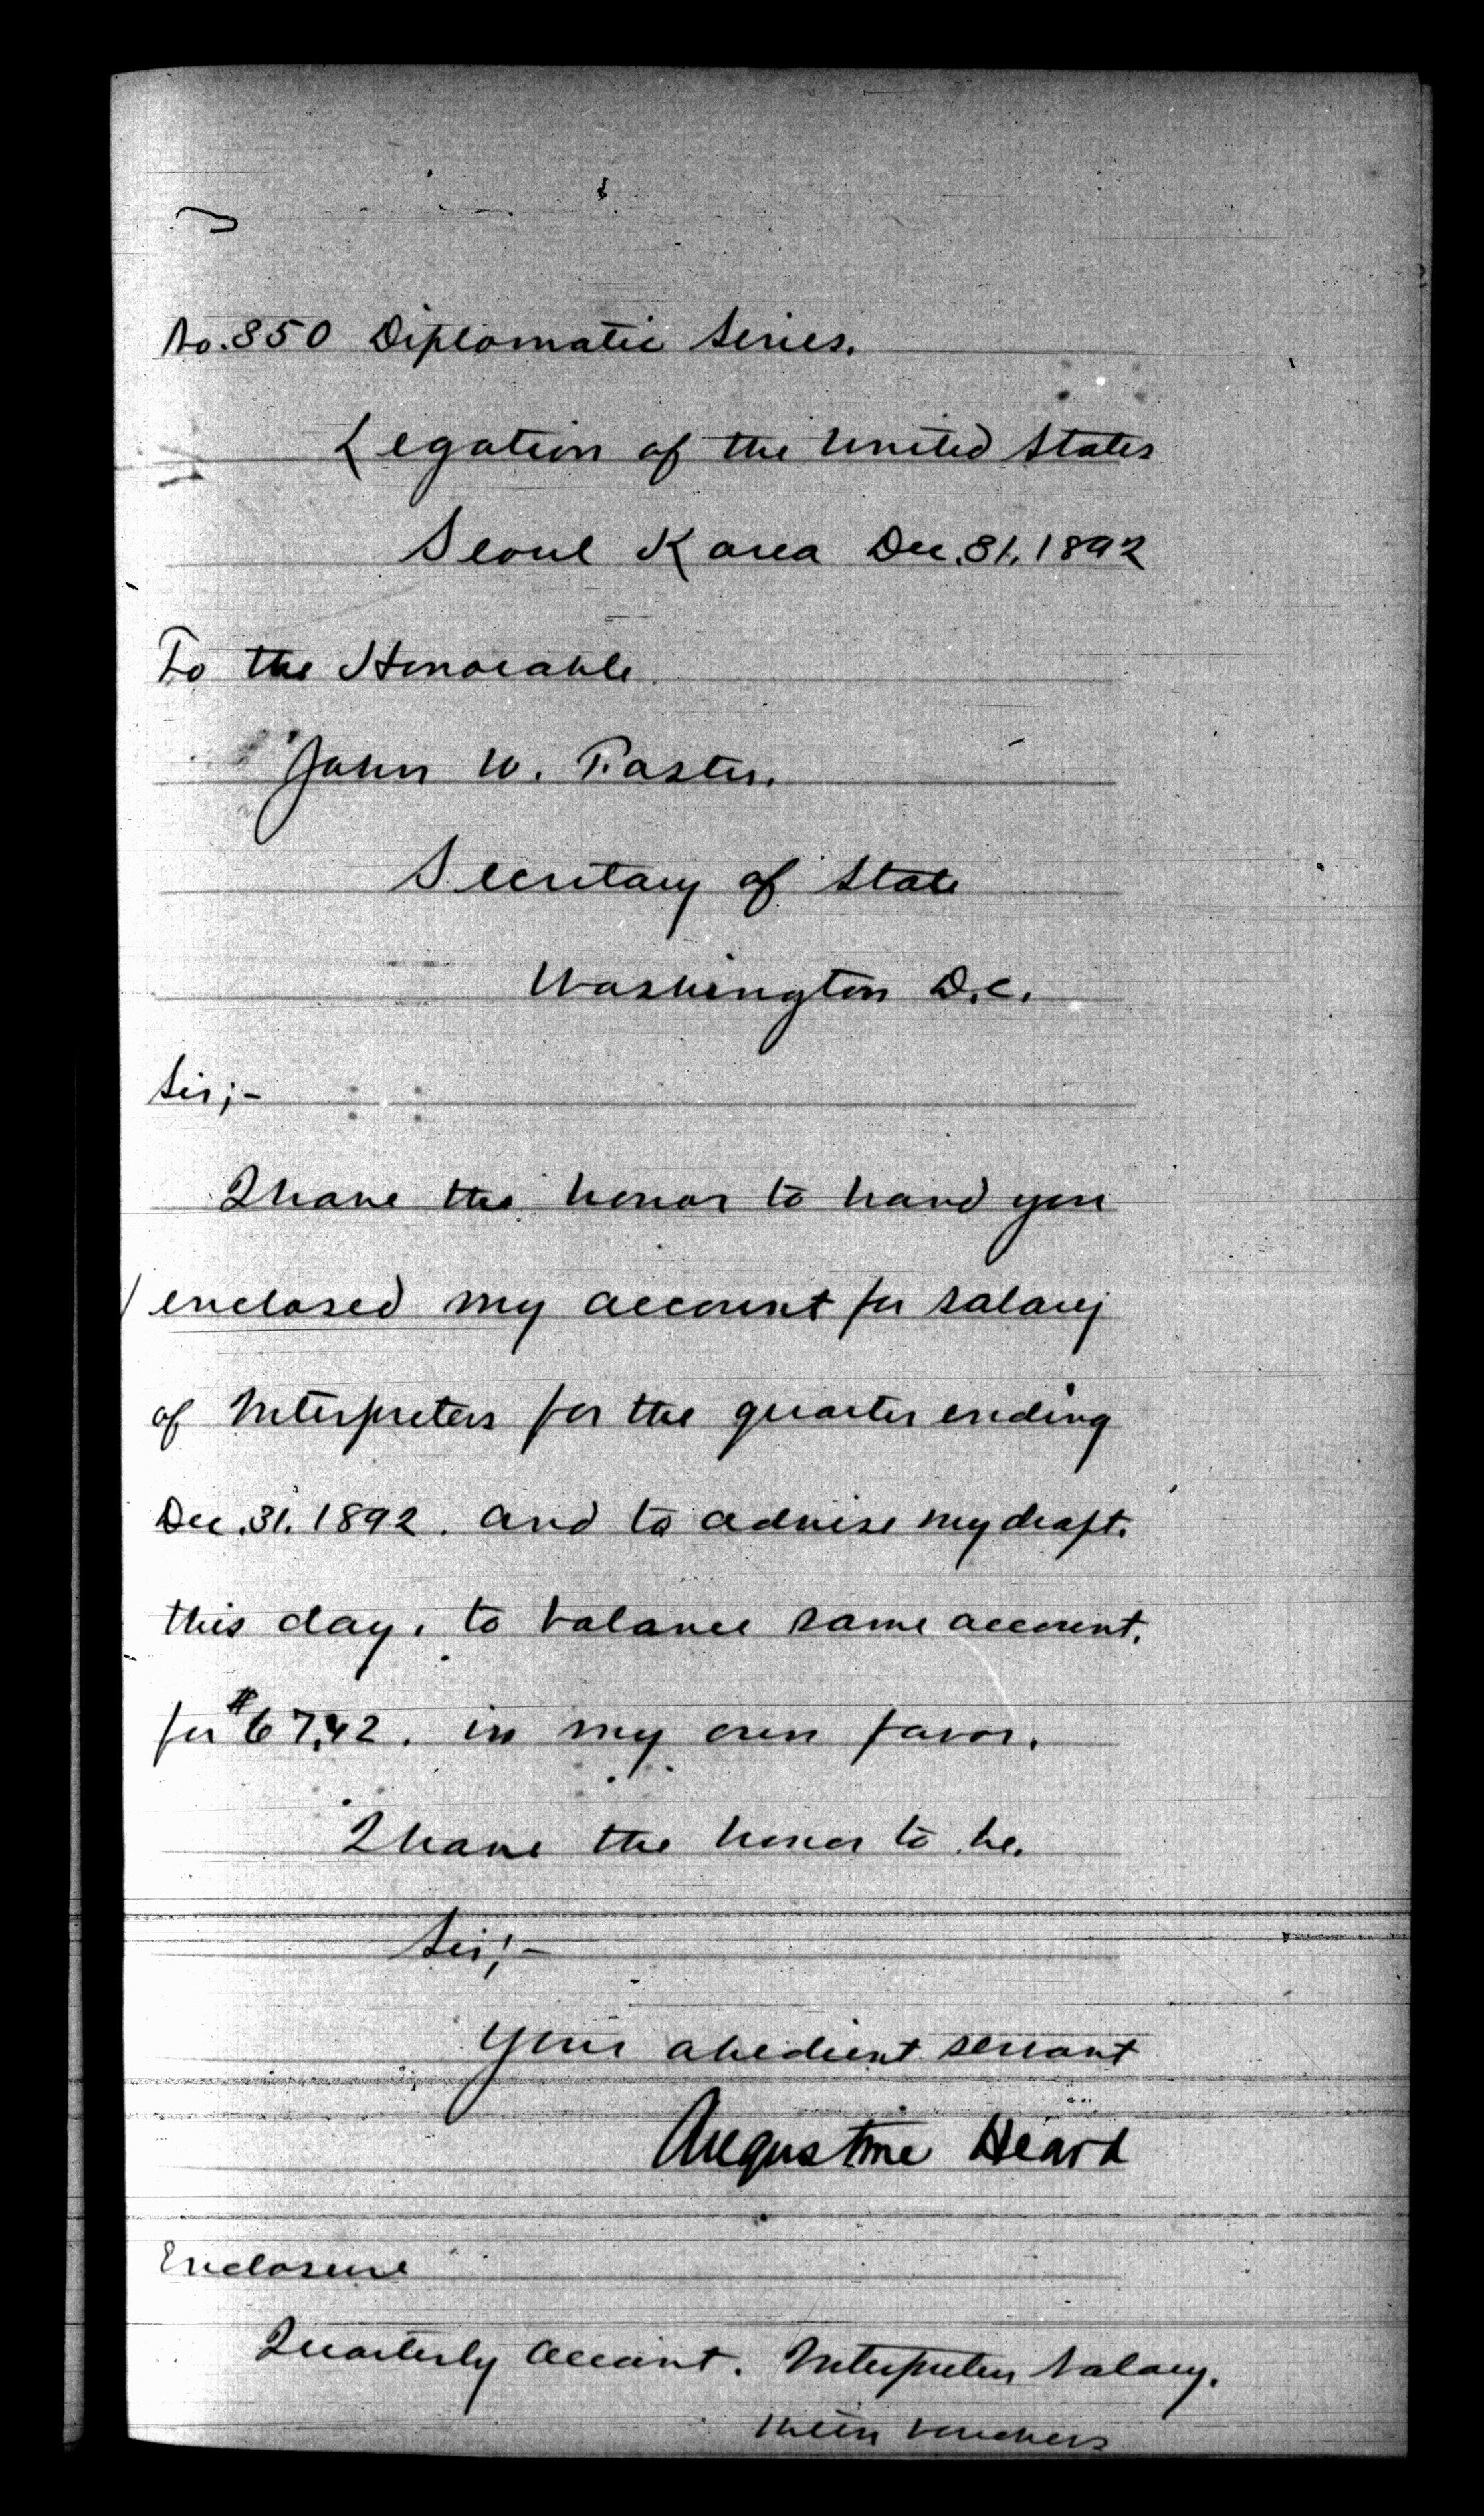 No. 350 Diplomatic Series.
Legation of the United States
Seoul Korea Dec. 31, 1892
To the Honorable
John W. Foster.
Secretary of State
Washington D.C.
Sir;-
I have the honor to hand you
enclosed my account for salary
of Interpreters for the quarter ending
Dec. 31. 1892. and to advise my draft.
this day, to balance same account.
for $67.42. in my own favor.
I have the honor to be.
Sir;-
Your obedient servant
Augustine Heard
Enclosure
Quarterly Account. Interpreters Salary.
vouchers